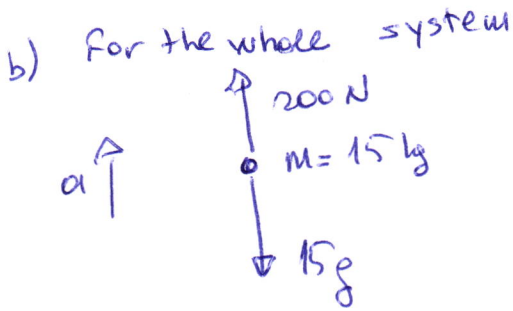 b) For the whole system
200 N
a
m = 15 kg
15g